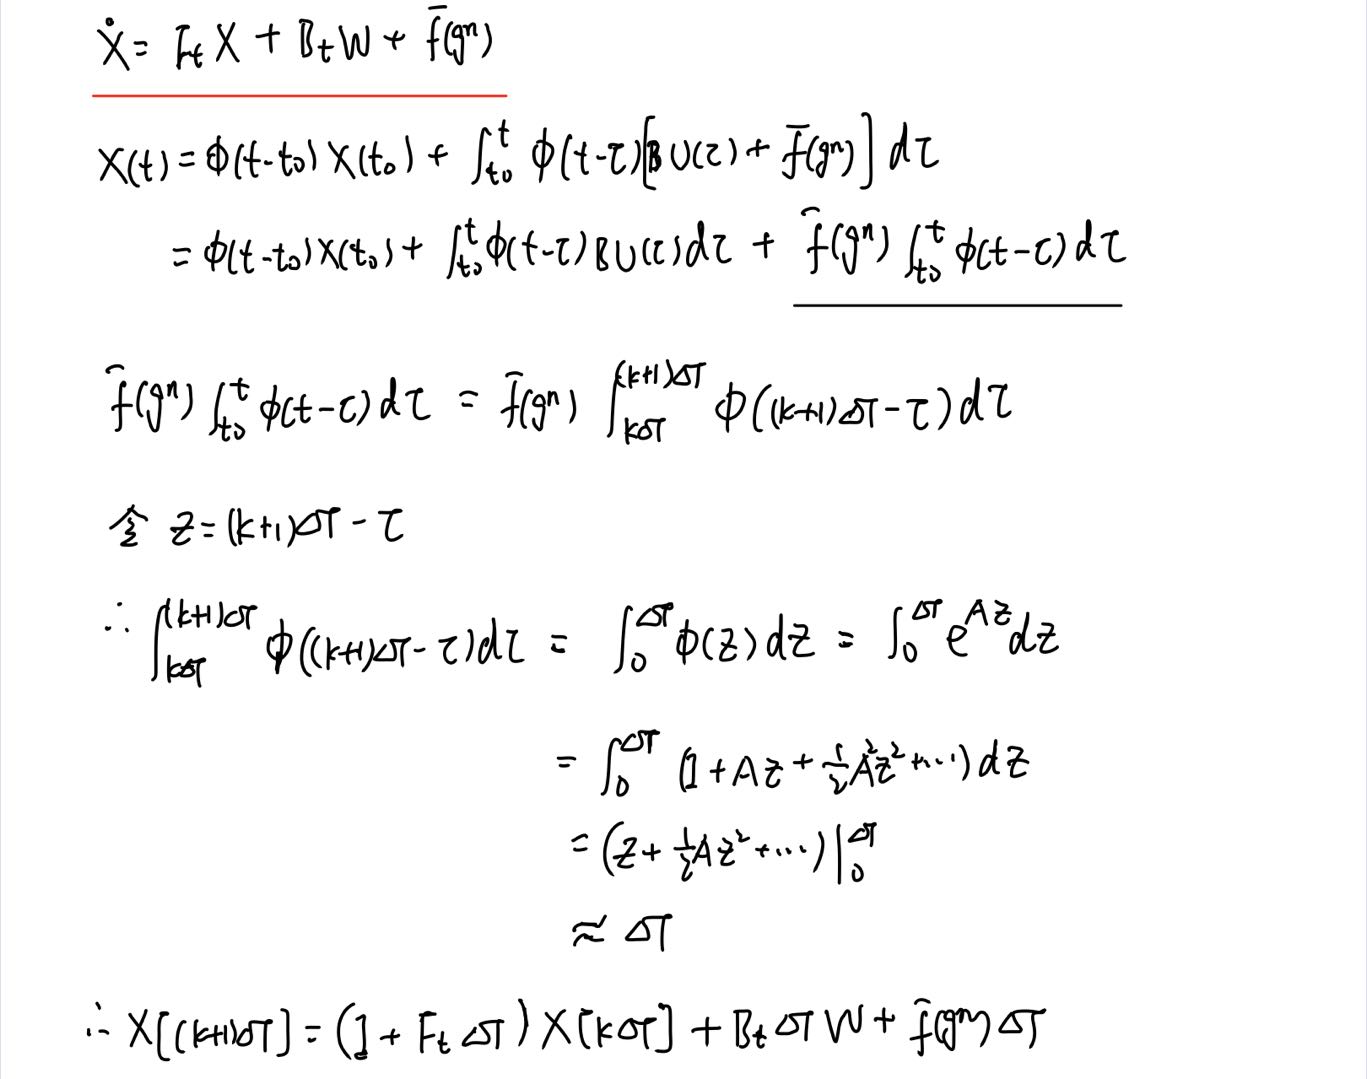 Ẋ = F_t X + B_t W + f̄(gⁿ)
X(t) = ϕ(t-t₀) X(t₀) + ∫_{t₀}^{t} ϕ(t-τ)[B U(τ) + f̄(gⁿ)] dτ
= ϕ(t-t₀) X(t₀) + ∫_{t₀}^{t} ϕ(t-τ) B U(τ) dτ + f̄(gⁿ) ∫_{t₀}^{t} ϕ(t-τ) dτ
f̄(gⁿ) ∫_{t₀}^{t} ϕ(t-τ) dτ = f̄(gⁿ) ∫_{kΔT}^{(k+1)ΔT} ϕ((k+1)ΔT-τ) dτ
令 z = (k+1)ΔT - τ
∴ ∫_{kΔT}^{(k+1)ΔT} ϕ((k+1)ΔT-τ) dτ = ∫_{0}^{ΔT} ϕ(z) dz = ∫_{0}^{ΔT} e^{Az} dz
= ∫_{0}^{ΔT} (I + Az + ½A²z² + ...) dz
= (z + ½Az² + ...)|_{0}^{ΔT}
≈ ΔT
∴ X[(k+1)ΔT] = (I + F_t ΔT) X[kΔT] + B_t ΔT W + f̄(gⁿ) ΔT